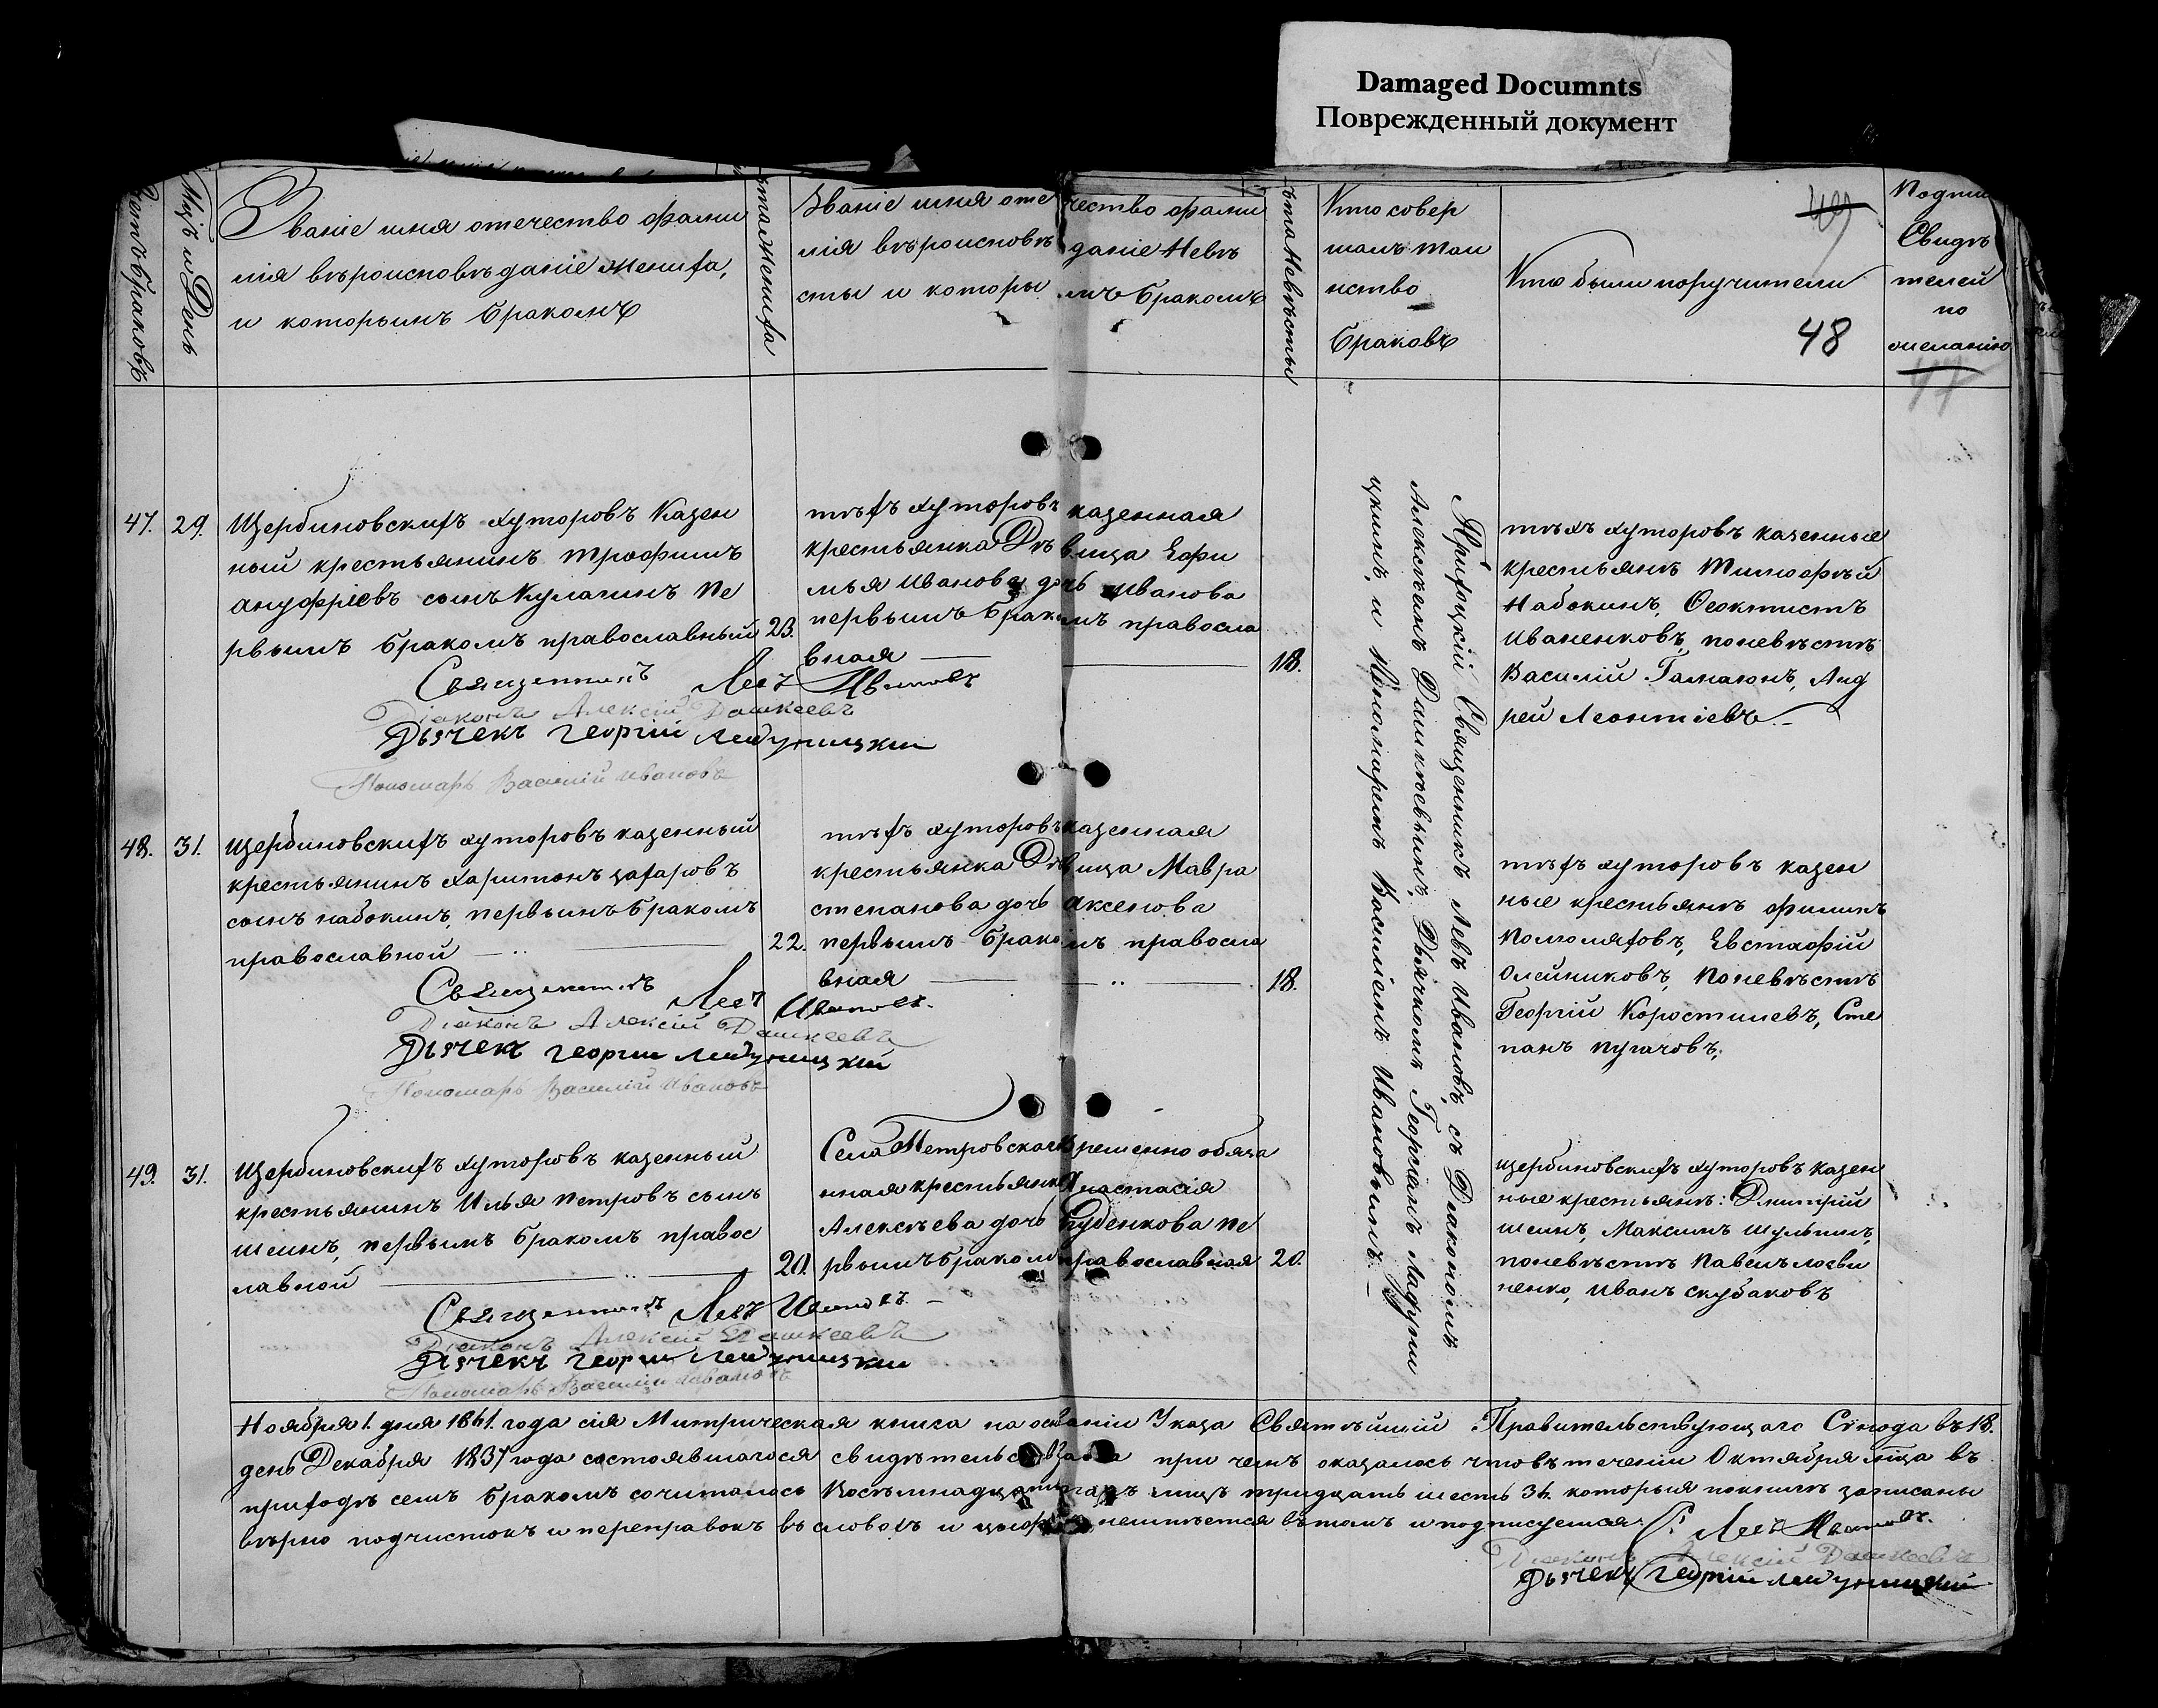 Damaged Documnts
Поврежденный документ
Счетъ браковъ
Мцъ и День
Званіе имя отечество фами
лія вѣроисповѣданіе жениха,
и которымъ бракомъ
лѣта жениха
Званіе имя отечество фами
лія вѣроисповѣданіе Невѣ
сты и которымъ бракомъ
лѣта Невѣсты
Кто совер
шалъ таи
нство
браковъ
Кто были поручители
49
48
Подпи
Свидѣ
телей
по
желанію
47
47.
29.
Щербиновскихъ хуторовъ Казен
ный крестьянинъ Трофимъ
ануфріевъ сынъ Кулагинъ Пе
рвымъ бракомъ православный
23.
Священникъ Левъ Ивановъ
Діаконъ Алексій Дашкеевъ
Дьячекъ Георгій
Пономарь Василій Ивановъ
тѣхъ хуторовъ казенная
крестьянка Дѣвица Ефи
мья Иванова дочь Иванова
первымъ бракомъ правосла
вная
18.
тѣхъ хуторовъ казенные
крестьянѣ Тимофѣй
Набокинъ, Феоктистъ
Иваненковъ, поневѣстѣ
Василій Гамаюнъ, Анд
рей Леонтіевъ
48.
31.
Щербиновскихъ хуторовъ казенный
крестьянинъ Харитонъ захаровъ
сынъ набокинъ, первымъ бракомъ
православной
22.
Священникъ Левъ Ивановъ.
Діаконъ Алексій Дашкеевъ
Дьячекъ Георгій
Пономарь Василій Ивановъ
тѣхъ хуторовъ казенная
крестьянка Дѣвица Мавра
степанова дочь аксенова
первымъ бракомъ правосла
вная
18.
тѣхъ хуторовъ казен
ные крестьянѣ филипъ
Евстафій
Олейниковъ, Поневѣстѣ
Георгій Коростилевъ, Сте
панъ пугачовъ.
49.
31.
Щербиновскихъ хуторовъ казенный
крестьянинъ Илья Петровъ сынъ
шеинъ, первымъ бракомъ правос
лавной
20.
Священникъ Левъ Ивановъ.
Діаконъ Алексій Дашкеевъ
Дьячекъ Георгій
Пономарь Василій Ивановъ
Села Петровскаго временно обяза
нная крестьянка Анастасія
Алексѣева дочь Буденкова пе
рвымъ бракомъ православная
20.
щербиновскихъ хуторовъ казен
ные крестьянѣ: Дмитрій
шеинъ, Максимъ шульгинъ,
поневѣстѣ Павелъ
Иванъ скубаковъ
Приходскій Священникъ Левъ Ивановъ, съ Діакономъ
Алексѣемъ Дашкѣевымъ, Дьячкомъ Георгіемъ
и Пономаремъ Василіемъ Ивановымъ.
Ноября 1. дня 1861. года сія Митрическая книга на основаніи Указа Святѣйшій Правительствующаго Синода въ 18.
день Декабря 1837 года состоявшагося свидѣтельствована при чемъ оказалось чтовъ теченіи Октября мца въ
приходѣ семъ бракомъ сочиталось Восѣмнадцать паръ лицъ тридцать шесть 36. которыя поколику записаны
вѣрно подчистокъ и переправокъ въ словахъ и цыфрахъ неимѣется вътомъ и подписуемся: С. Левъ Ивановъ.
Діаконъ Алексій Дашкеевъ
Дьячекъ Георгій